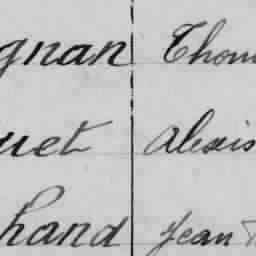 gnan Thom
uet Alexis
hand Jean